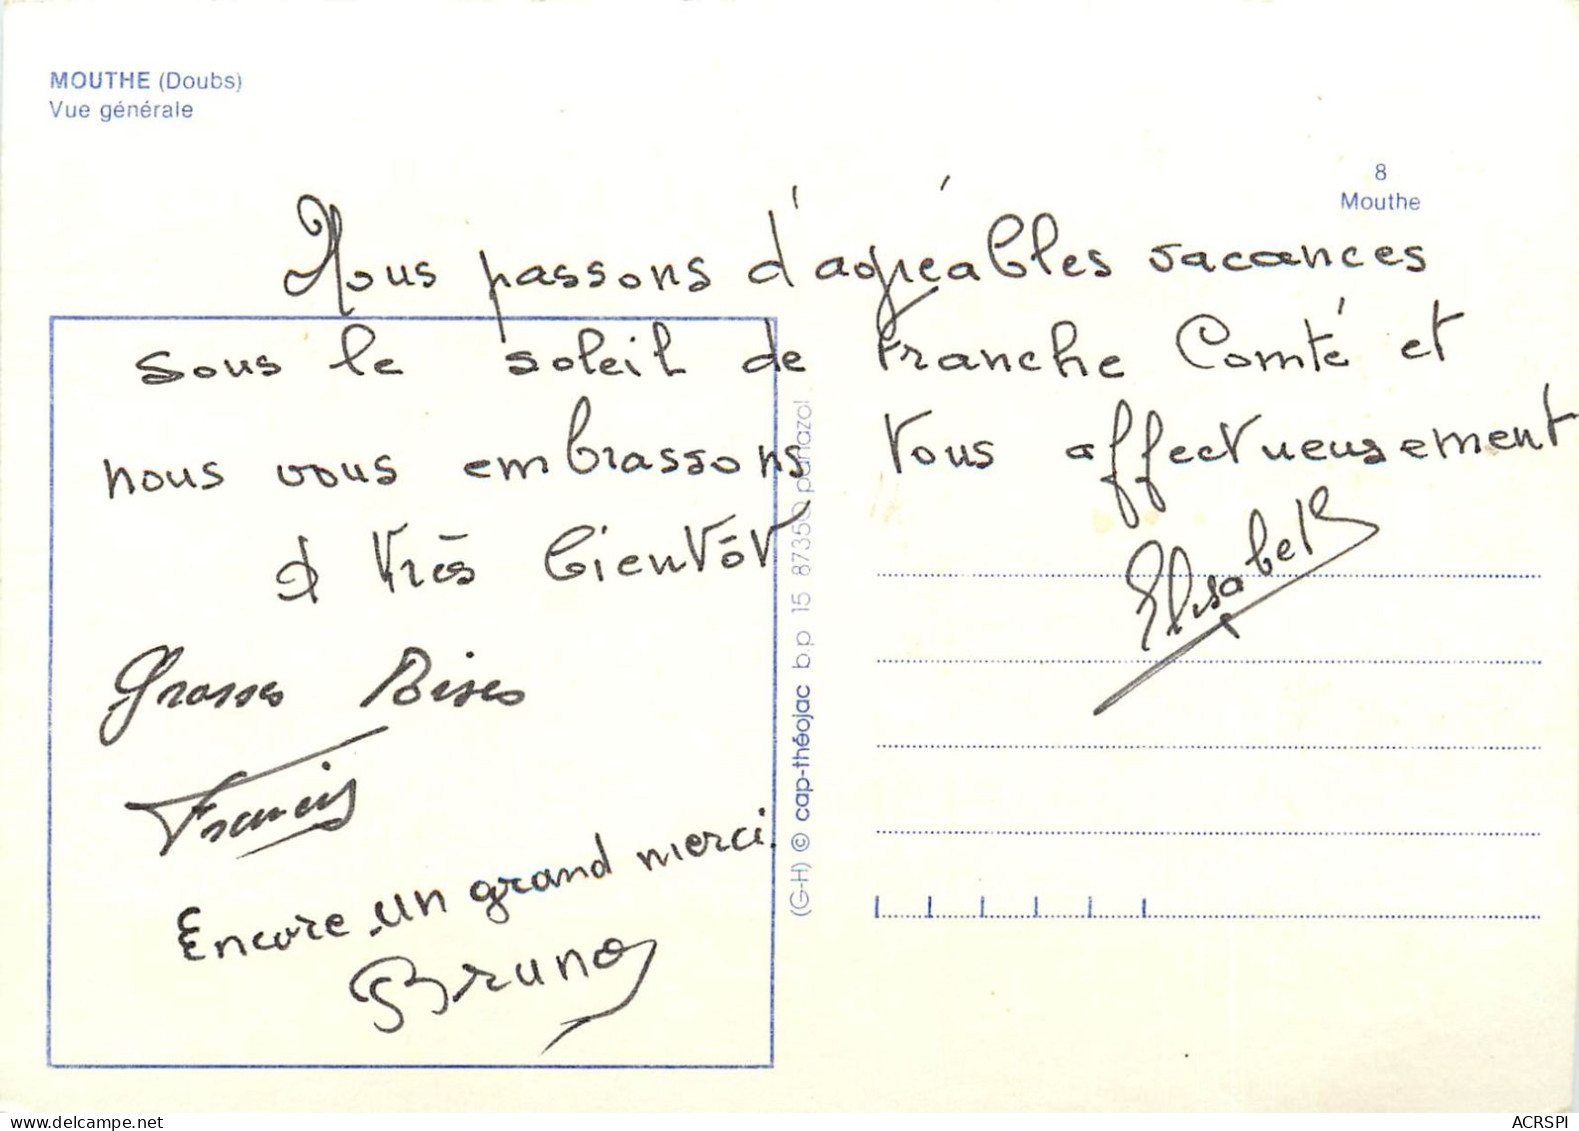 MOUTHE (Doubs)
Vue générale
8
Mouthe
Nous passons d'agréables vacances
sous le soleil de Franche Comté et
nous vous embrassons tous affectueusement
à très bientôt
Elisabeth
Grosses Bises
Francis
Encore un grand merci.
Bruno
(G-H) © cap-théojac b.p 15 87350 panazol
www.delcampe.net
ACRSPI